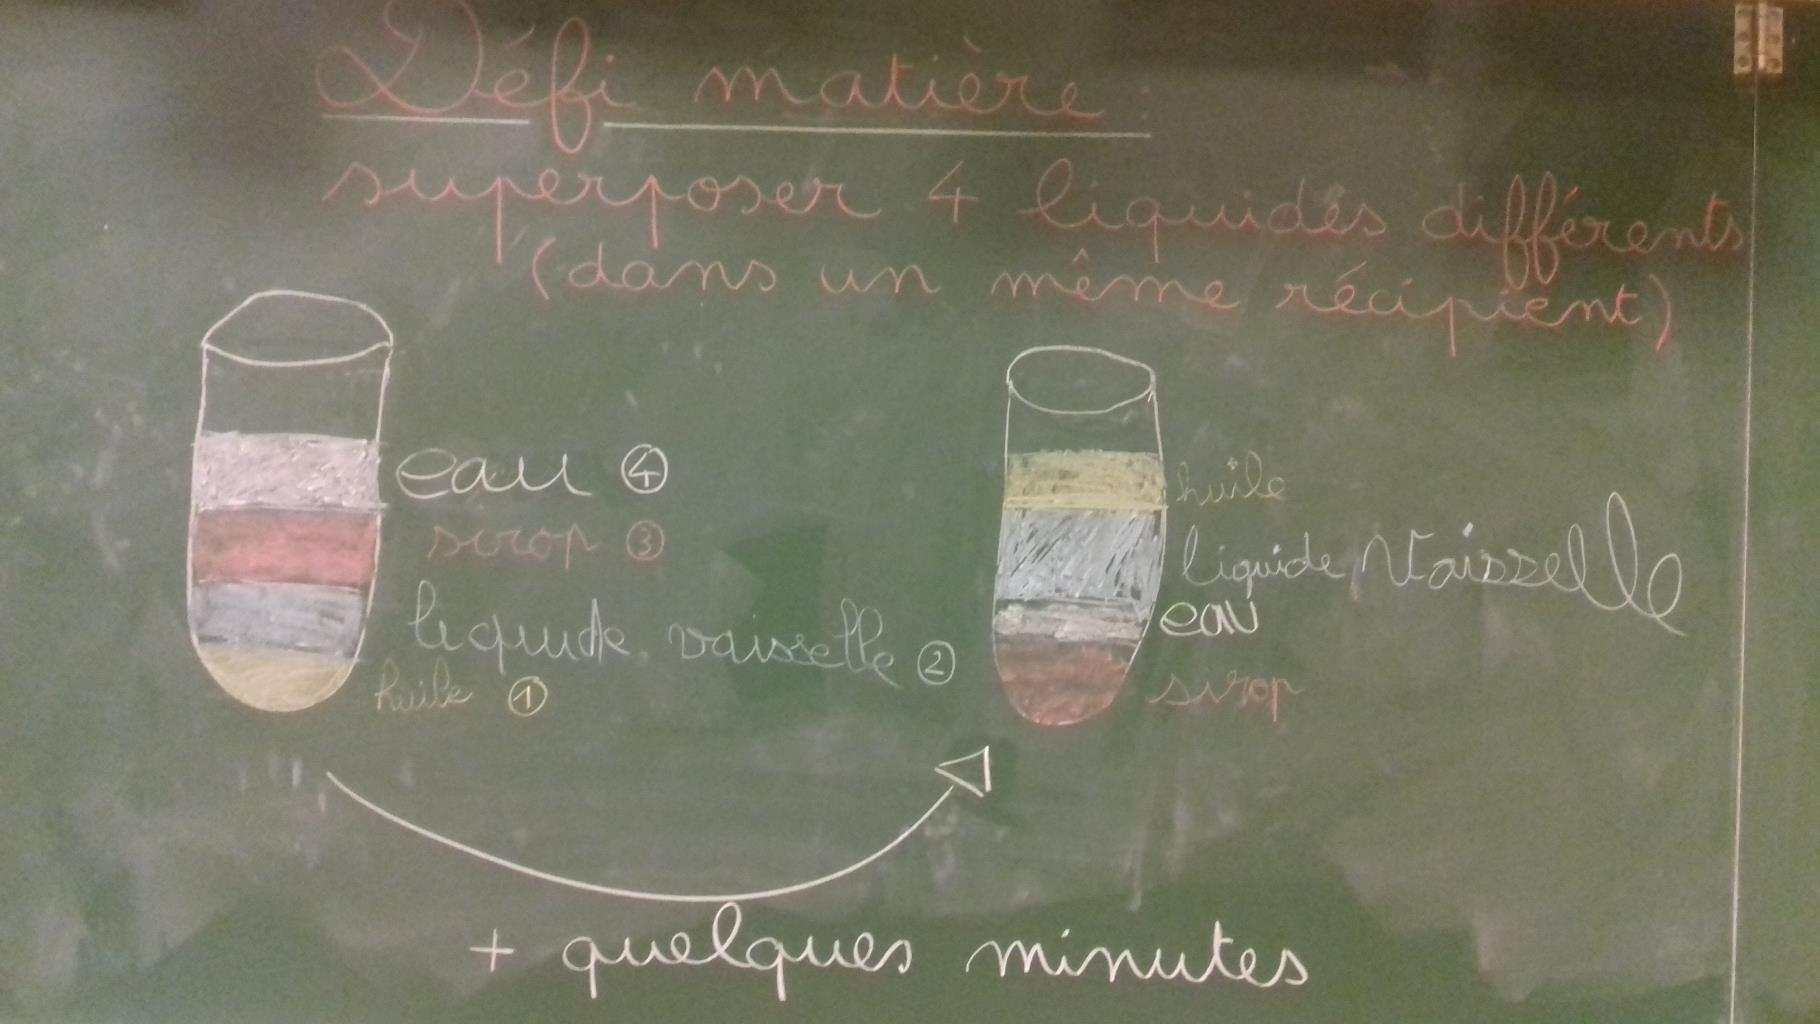 Défi matière :
superposer 4 liquides différents
(dans un même récipient)
eau ④
sirop ③
liquide vaisselle ②
huile ①
huile
liquide Vaisselle
eau
sirop
+ quelques minutes